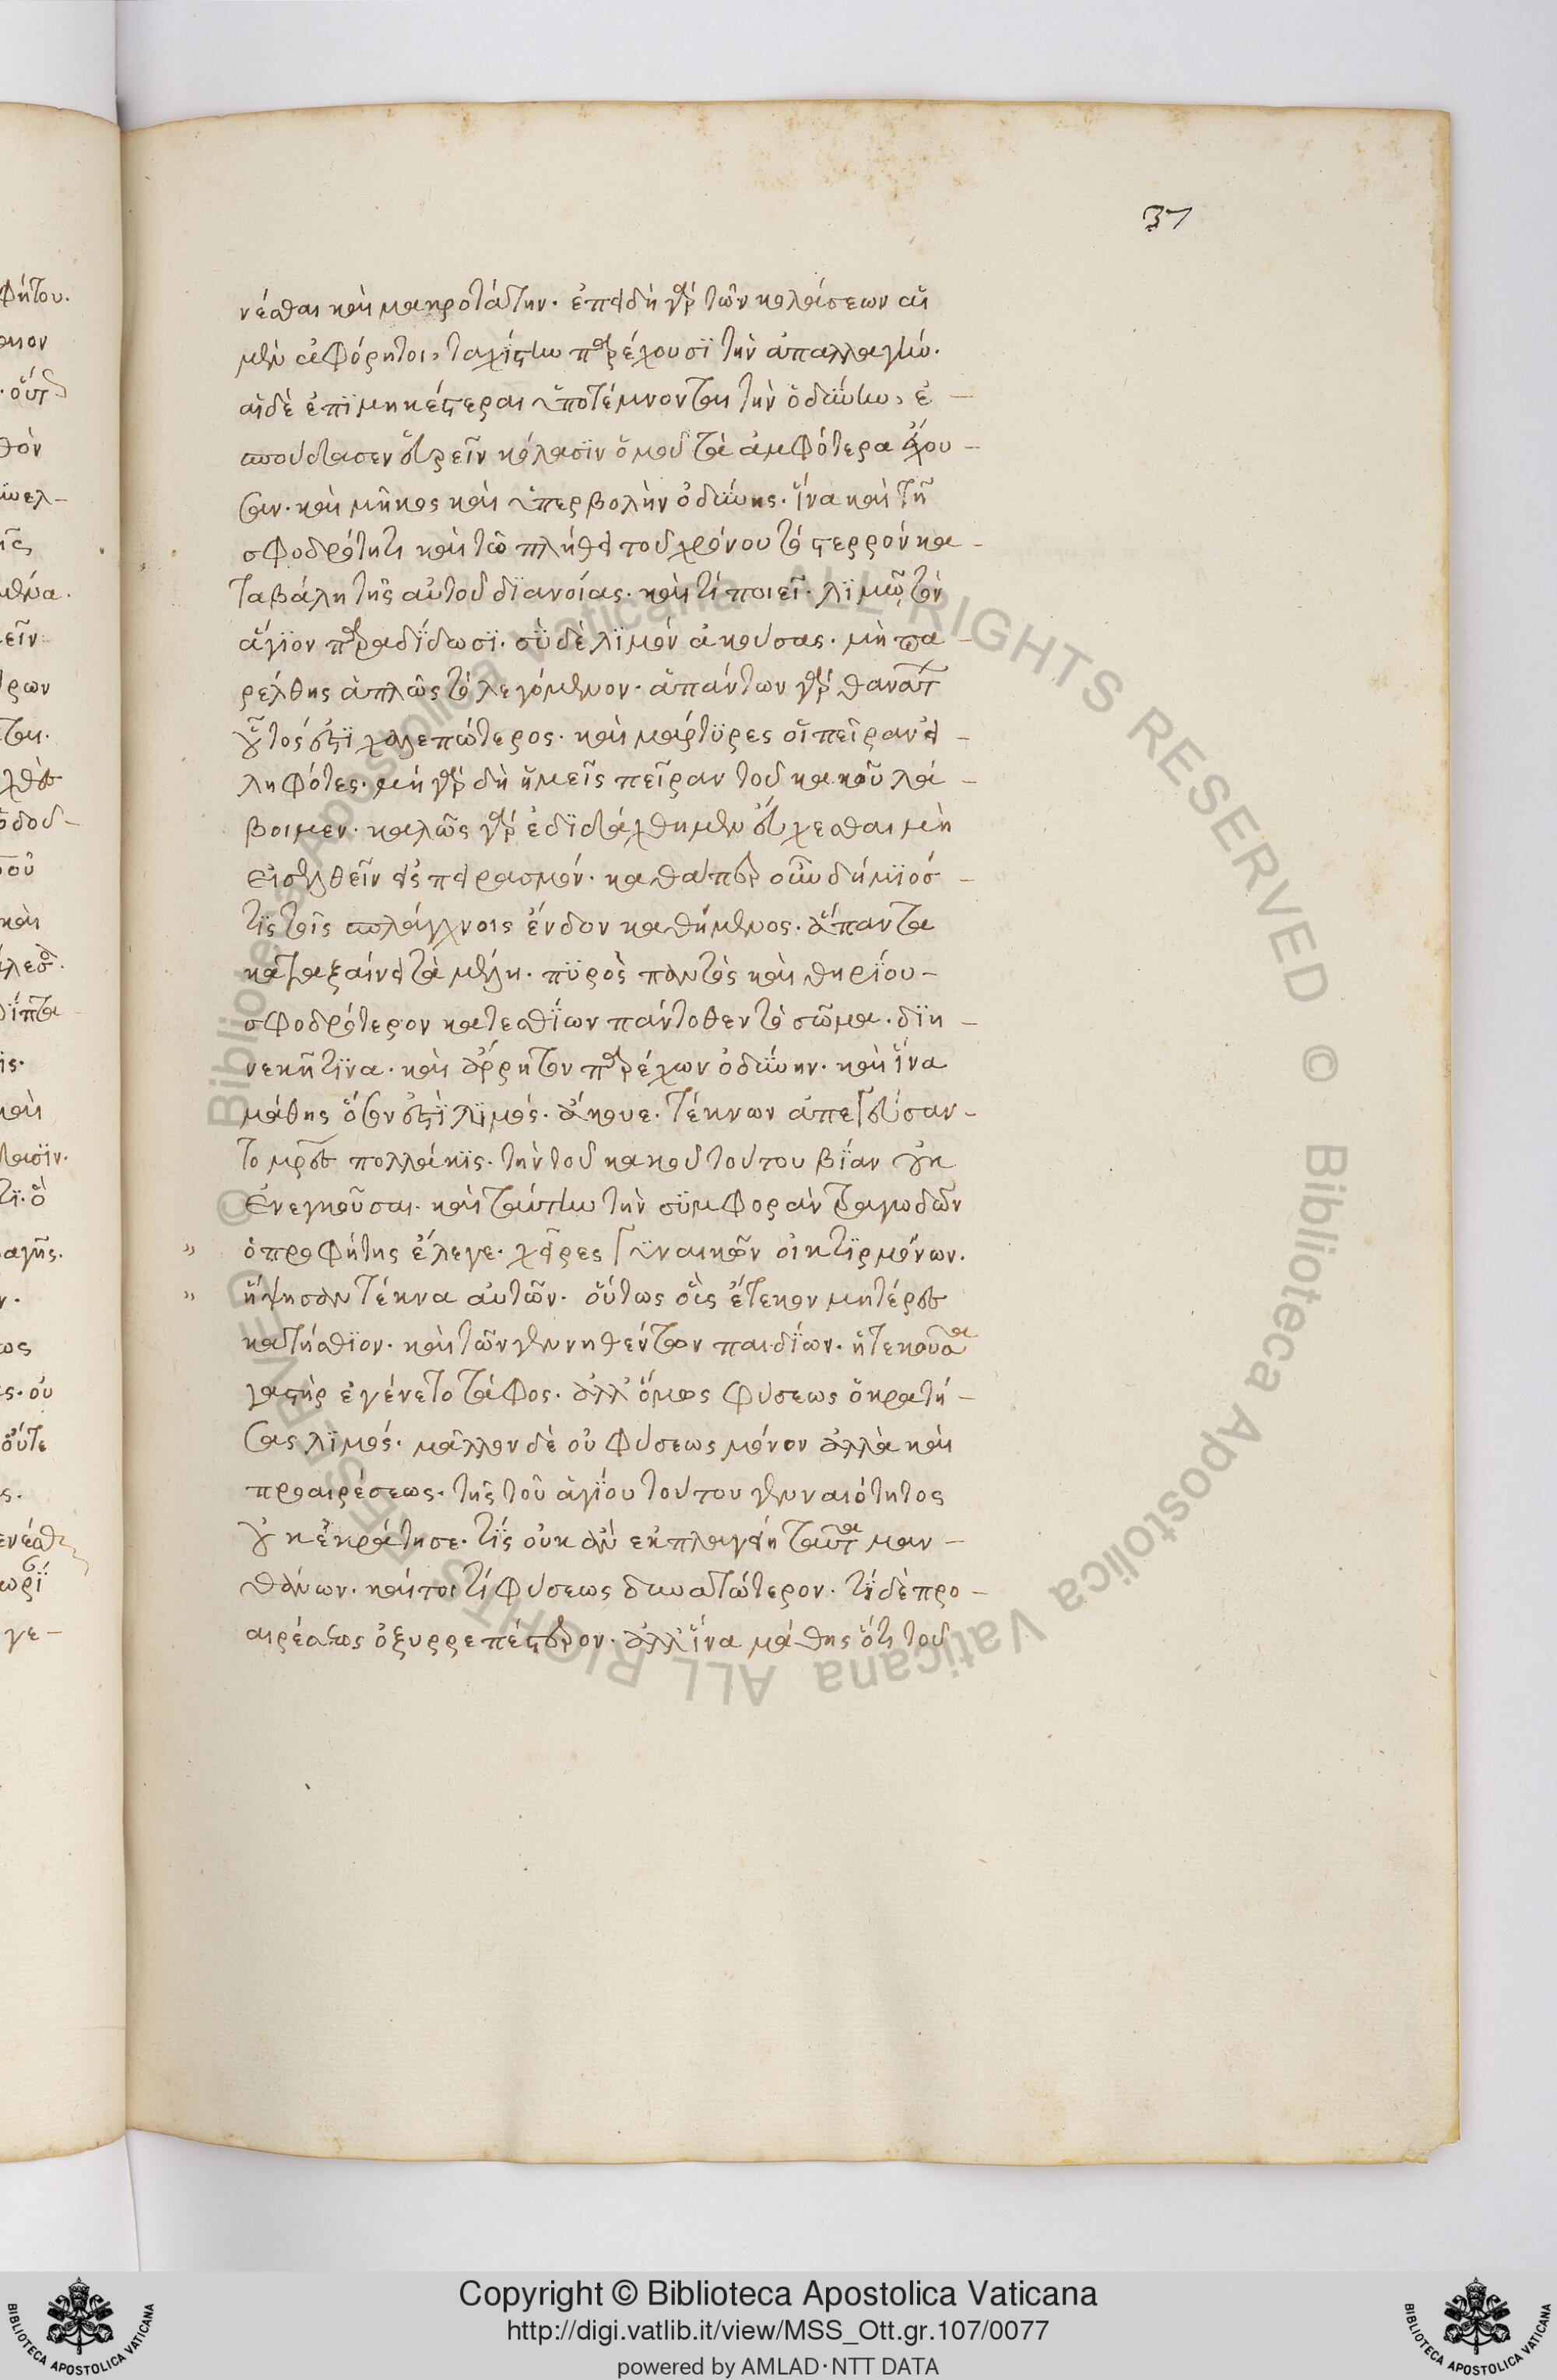 37
νέσθαι καὶ μακροτάτην. ἐπειδὴ γὰρ τῶν κολάσεων αἱ
μὲν ἀφόρητοι, ταχίστην παρέχουσϊ τὴν ἀπαλλαγήν.
αἱ δὲ ἐπϊμηκέστεραι ὑποτέμνονται τὴν ὀδύνην, ἐ
σπούδασεν εὑρεῖν κόλασϊν ὁμοῦ τὰ ἀμφότερα ἔχου
σαν. καὶ μῆκος καὶ ὑπερβολὴν ὀδύνης. ἵνα καὶ τῆ
σφοδρότητι καὶ τῶ πλήθει τοῦ χρόνου τὸ στερρὸν κα
ταβάλη τῆς αὐτοῦ δϊανοίας. καὶ τί ποιεῖ. λϊμῶ τὸν
ἅγϊον παραδίδωσϊ. σὺ δὲ λϊμὸν ἀκούσας. μὴ πα
ρέλθης ἁπλῶς τὸ λεγόμενον. ἁπάντων γὰρ θανάτων
οὗτός ἐστϊ χαλεπώτερος. καὶ μάρτϋρες οἱ πεῖραν εἰ
ληφότες. μὴ γὰρ δὴ ἡμεῖς πεῖραν τοῦ κακοῦ λά
βοιμεν. καλῶς γὰρ ἐδϊδάχθημεν εὔχεσθαι μὴ
εἰσελθεῖν εἰς πειρασμόν. καθάπερ οὖν δήμϊός
τϊς τοῖς σπλάγχνοις ἔνδον καθήμενος. ἅπαντα
καταξαίνει τὰ μέλη. πϋρὸς παντὸς καὶ θηρίου
σφοδρότερον κατεσθίων πάντοθεν τὸ σῶμα. δϊη
νεκῆ τϊνα. καὶ ἄρρητον παρέχων ὀδύνην. καὶ ἵνα
μάθης ὅσον ἐστϊ λϊμός. ἄκουε. τέκνων ἀπεγεύσαν
το μητέρες πολλάκϊς. τὴν τοῦ κακοῦ τούτου βίαν οὐκ
ἐνεγκοῦσαι. καὶ ταύτην τὴν σϋμφορὰν τραγωδῶν
ὁ προφήτης ἔλεγε. χεῖρες γϋναικῶν οἰκτϊρμόνων.
ἥψησαν τέκνα αὐτῶν. οὕτως οὓς ἔτεκον μητέρες
κατήσθϊον. καὶ τῶν γεννηθέντων παιδίων. ἡ τεκοῦσα
γαστὴρ ἐγένετο τάφος. ἀλλ' ὅμως φύσεως ὁ κρατή
σας λϊμός. μᾶλλον δὲ οὐ φύσεως μόνον ἀλλὰ καὶ
προαιρέσεως. τῆς τοῦ ἁγίου τούτου γενναιότητος
οὐκ ἐκράτησε. τίς οὐκ ἂν ἐκπλαγείη ταῦτα μαν
θάνων. καίτοι τί φύσεως δυνατώτερον. τί δὲ προ
αιρέσεως ὀξυρρεπέστερον. ἀλλ' ἵνα μάθης ὅτι τοῦ
Copyright © Biblioteca Apostolica Vaticana
http://digi.vatlib.it/view/MSS_Ott.gr.107/0077
powered by AMLAD·NTT DATA